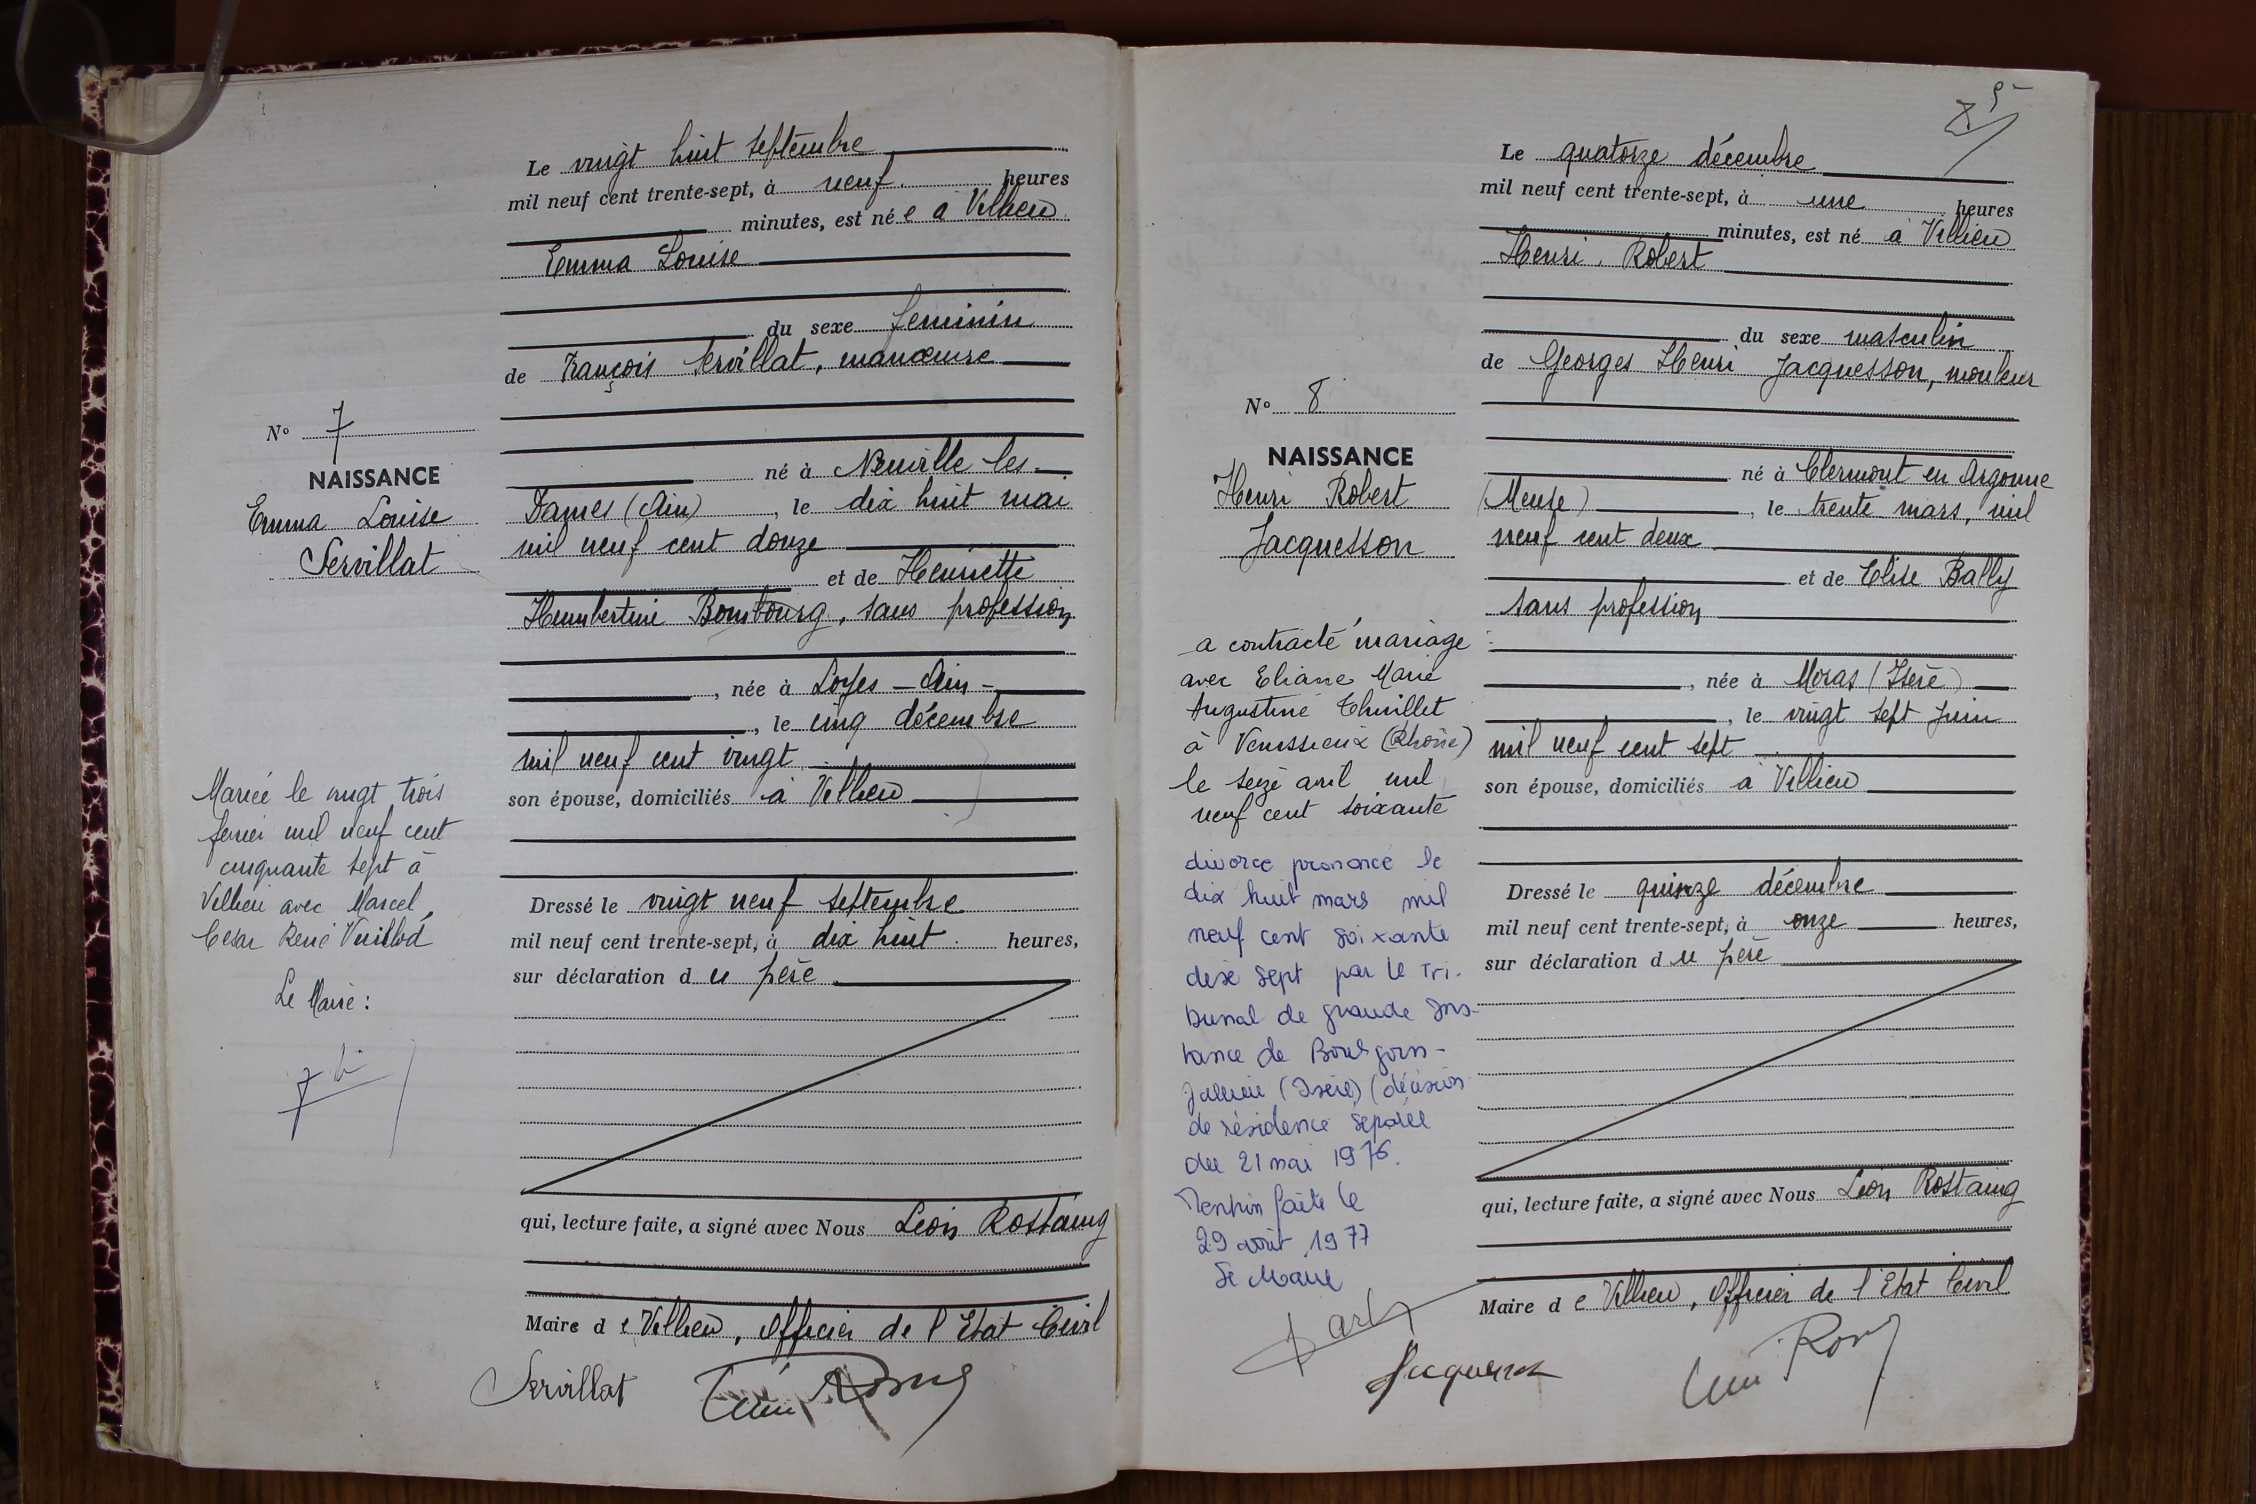 Le vingt huit septembre
mil neuf cent trente-sept, à neuf heures
minutes, est né e à Villieu
Emma Louise
du sexe feminin
de François Servillat, manœuvre
né à Neuville les
Dames (Ain), le dix huit mai
mil neuf cent douze
et de Henriette
Humbertine Bombourg, sans profession
, née à Loyes - Ain -
, le cinq décembre
mil neuf cent vingt
son épouse, domiciliés à Villieu
Dressé le vingt neuf septembre
mil neuf cent trente-sept, à dix huit heures,
sur déclaration d u père
qui, lecture faite, a signé avec Nous Léon Rostaing
Maire d e Villieu, Officier de l'Etat Civil
Servillat
N° 7
NAISSANCE
Emma Louise
Servillat
Mariée le vingt trois
fevrier mil neuf cent
cinquante sept à
Villieu avec Marcel
César René
Le Maire :
Le quatorze décembre
mil neuf cent trente-sept, à une heures
minutes, est né à Villieu
Henri Robert
du sexe masculin
de Georges Henri Jacquesson, mouleur
né à Clermont en Argonne
(Meuse), le trente mars, mil
neuf cent deux
et de Elise Bally
sans profession
, née à Moras (Isère)
, le vingt sept juin
mil neuf cent sept
son épouse, domiciliés à Villieu
Dressé le quinze décembre
mil neuf cent trente-sept, à onze heures,
sur déclaration d u père
qui, lecture faite, a signé avec Nous Léon Rostaing
Maire d e Villieu, Officier de l'Etat Civil
N° 8
NAISSANCE
Henri Robert
Jacquesson
a contracté mariage
avec Eliane Marie
Augustine Thuillet
à Venissieux (Rhône)
le seize avril mil
neuf cent soixante
divorce prononcé le
dix huit mars mil
neuf cent soixante
dixe sept par le tri-
bunal de grande Ins-
tance de Bourgoin-
Jallieu (Isère) (décision
de résidence séparée
du 21 mai 1976.
Mention faite le
29 août 1977
Le Maire